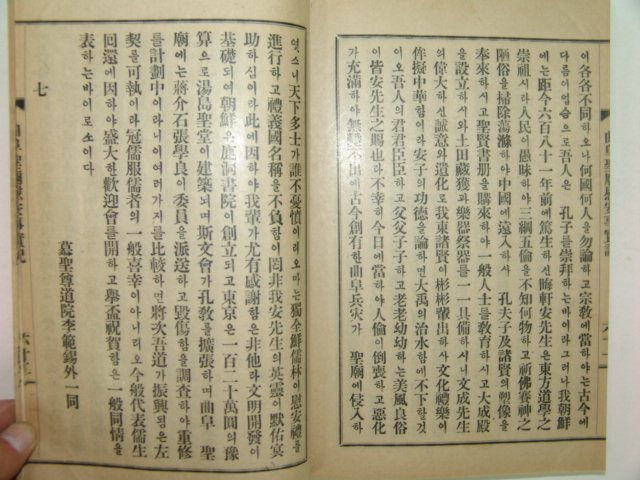 이各各不同하오나何國何人을勿論하고宗敎에當하야는古今에
다름이업슴으로吾人은 孔子를崇拜하는바이라그러나我朝鮮
에는距今六百八十一年前에篤生하신晦軒安先生은東方道學之
崇祖시라人民이愚昧하야三綱五倫을不知何物하고祈佛賽神之
陋俗을掃除蕩滌하야中國에遠入하사 孔夫子及諸賢의塑像을
奉來하시고聖賢書册을購來하야一般人士를敎育하시고大成殿
을設立하신後와土田藏獲과樂器祭器를一一具備하시니文成先生
의偉大하신誠意와遺化로我東諸賢이彬彬輩出하사文化禮樂이
侔擬中華함이라安子의功德을論하면大禹의治水함에不下할것
이오吾人의君君臣臣하고父父子子하고老老幼幼하는美風良俗
이皆安先生之賜也라不幸히今日에當하야人倫이倒喪하고惡化
가充滿하야無 不出에古今創有한曲阜兵灾가 聖廟에侵入하
엿스니天下多士가誰不憂憤이리오마는獨全鮮儒林이慰安禮를
進行하고禮義國名稱을不負함이罔非我安先生의英靈이默佑冥
助하심이라此에因하야我輩가尤有感謝함은非他라文明開發이
基礎되여朝鮮은鹿洞書院이創立되고東京은一百二十萬圓의豫
算으로湯島聖堂이建築되며斯文會가孔敎를擴張하며曲阜 聖
廟에는蔣介石張學良이委員을派送하고毀傷함을調査하야重修
를計劃中이라니이여러가지를比較하면將次吾道가振興됨은左
契를可執이라冠儒服儒者의一般喜幸이아니리오今般代表儒生
回還에因하야盛大한歡迎會를開하고學盃祝賀함은一般同情을
表하는바이로소이다
慕聖尊道院李範錫外一同
七